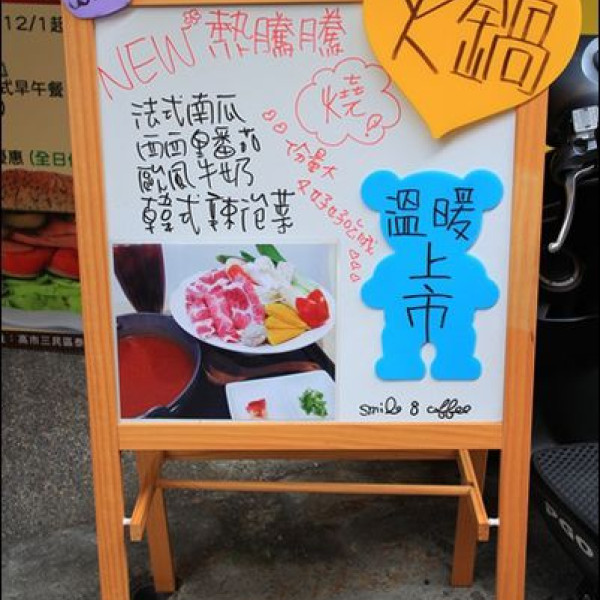 火鍋
NEW 熱騰騰
燒!
法式南瓜
西西里番茄
歐風牛奶
韓式辣泡菜
份量大
又好好吃哦
溫暖
上市
smile 8 coffee
12/1起
式早午餐
優惠(全日供
高市三民區
PGO